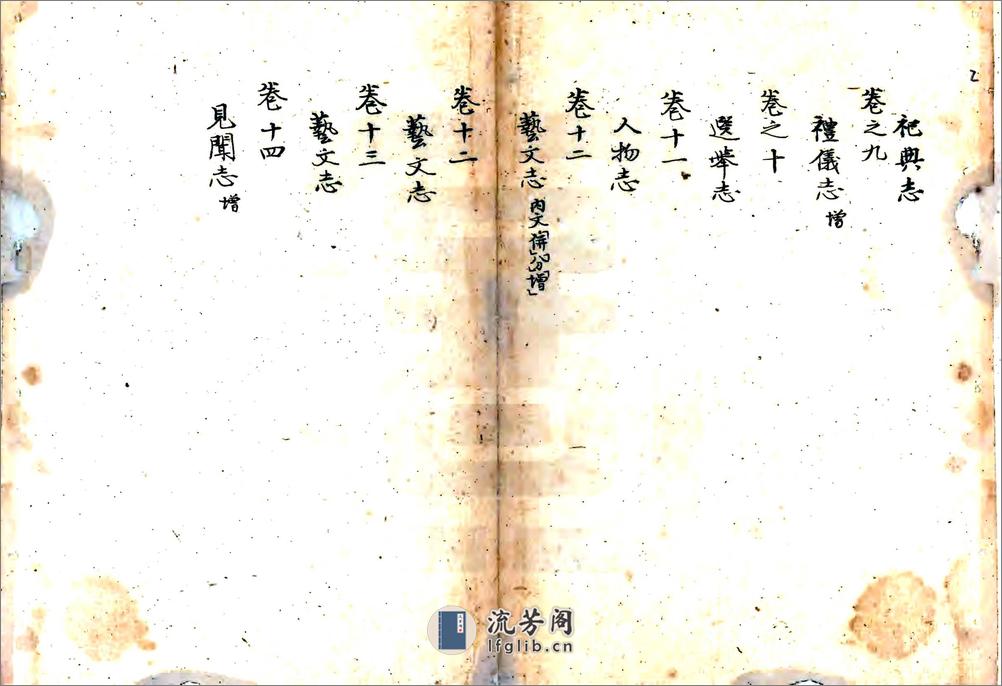 2
祀典志
卷之九
禮儀志 增
卷之十
選舉志
卷十一
人物志
卷十二
藝文志 內文「併」分「增」
卷十二
藝文志
卷十三
藝文志
卷十四
見聞志 增
流芳阁
lfglib.cn